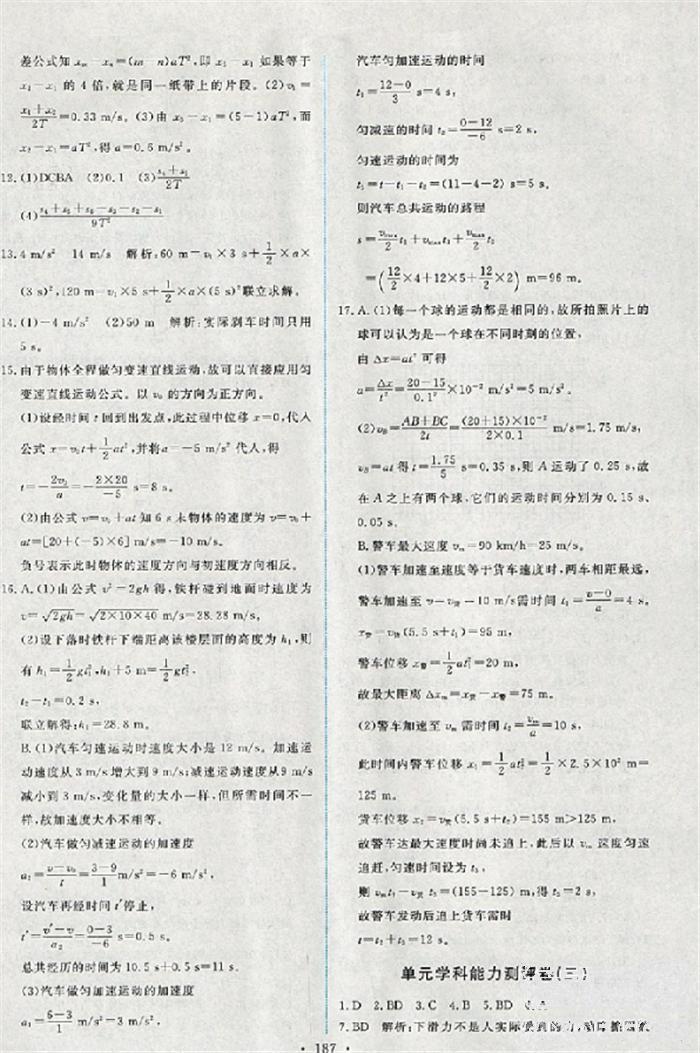 差公式知 xₘ－xₙ=(m－n)aT²,即 x₅－x₁ 如果等于
x₂－x₁ 的 4 倍,就是同一纸带上的片段。(2)v₁=
(x₁+x₂)/2T=0.33 m/s。(3)由 x₅－x₁=(5－1)aT²,而
x₂－x₁=aT²,得 a=0.6 m/s²。
12.(1)DCBA (2)0.1 (3)(s₄+s₃)/2T
(4)(s₄+s₅+s₆－s₃－s₂－s₁)/9T²
13.4 m/s² 14 m/s 解析:60 m=v₁×3 s+1/2×a×
(3 s)²,120 m=v₁×5 s+1/2×a×(5 s)²联立求解。
14.(1)－4 m/s² (2)50 m 解析:实际刹车时间只用
5 s。
15.由于物体全程做匀变速直线运动,故可以直接应用匀
变速直线运动公式。以 v₀ 的方向为正方向。
(1)设经时间 t 回到出发点,此过程中位移 x=0,代入
公式 x=v₀t+1/2at²,并将a=－5 m/s² 代入,得
t=－2v₀/a=－(2×20)/(－5) s=8 s。
(2)由公式 v=v₀+at 知 6 s 末物体的速度为 v=v₀+
at=[20+(－5)×6] m/s=－10 m/s。
负号表示此时物体的速度方向与初速度方向相反。
16.A.(1)由公式 v²=2gh 得,铁杆碰到地面时速度为
v=√2gh=√2×10×40 m/s=28.28 m/s。
(2)设下落时铁杆下端距离该楼层面的高度为 h₁,则
有 h₁=1/2gt₁²,h₁+5 m=1/2gt₂²,
t₂－t₁=0.2 s,
联立解得:h₁=28.8 m。
B.(1)汽车匀速运动时速度大小是 12 m/s。加速运
动速度从 3 m/s增大到 9 m/s;减速运动速度从9 m/s
减小到 3 m/s,变化量的大小一样,但所需时间不一
样,故加速度大小不相等。
(2)汽车做匀减速运动的加速度
a₂=(v－v₀)/t=(3－9)/1 m/s²=－6 m/s²,
设汽车再经时间 t′停止,
t′=(v′－v)/a₂=(0－3)/(－6) s=0.5 s。
总共经历的时间为 10.5 s+0.5 s=11 s。
(3)汽车做匀加速运动的加速度
a₁=(6－3)/1 m/s²=3 m/s²,
汽车匀加速运动的时间
t₁=(12－0)/3 s=4 s,
匀减速的时间 t₂=(0－12)/(－6) s=2 s,
匀速运动的时间为
t₃=t－t₁－t₂=(11－4－2) s=5 s。
则汽车总共运动的路程
s=vₘₐₓ/2 t₁+vₘₐₓt₃+vₘₐₓ/2 t₂
=(12/2×4+12×5+12/2×2) m=96 m。
17.A.(1)每一个球的运动都是相同的,故所拍照片上的
球可以认为是一个球在不同时刻的位置,
由 Δx=at² 可得
a=Δx/t²=(20－15)/0.1²×10⁻² m/s²=5 m/s²。
(2)v_B=(AB+BC)/2t=((20+15)×10⁻²)/(2×0.1) m/s=1.75 m/s,
v_B=at 得 t=1.75/5 s=0.35 s,则 A 运动了 0.25 s,故
在 A 之上有两个球,它们的运动时间分别为 0.15 s、
0.05 s。
B.警车最大速度 vₘ=90 km/h=25 m/s。
(1)警车加速至速度等于货车速度时,两车相距最远,
警车加速至 v=v货=10 m/s需时间 t₁=(v－0)/a=4 s,
x货=v货(5.5 s+t₁)=95 m,
警车位移 x警=1/2at₁²=20 m,
故最大距离 Δxₘ=x货－x警=75 m。
(2)警车加速至 vₘ 需时间 t₂=vₘ/a=10 s,
此时间内警车位移 x₁=1/2at₂²=1/2×2.5×10² m=
125 m。
货车位移 x₂=v货(5.5 s+t₂)=155 m>125 m,
故警车达最大速度时尚未追上,此后以 vₘ 速度匀速
追赶,匀速时间设为 t₃,
则 vₘt₃－v货 t₃=(155－125) m,得 t₃=2 s,
故警车发动后追上货车需时
t=t₂+t₃=12 s。
单元学科能力测评卷(三)
1.D 2.BD 3.C 4.B 5.BD 6.A
7.BD 解析:下滑力不是人实际受到的力,
• 187 •